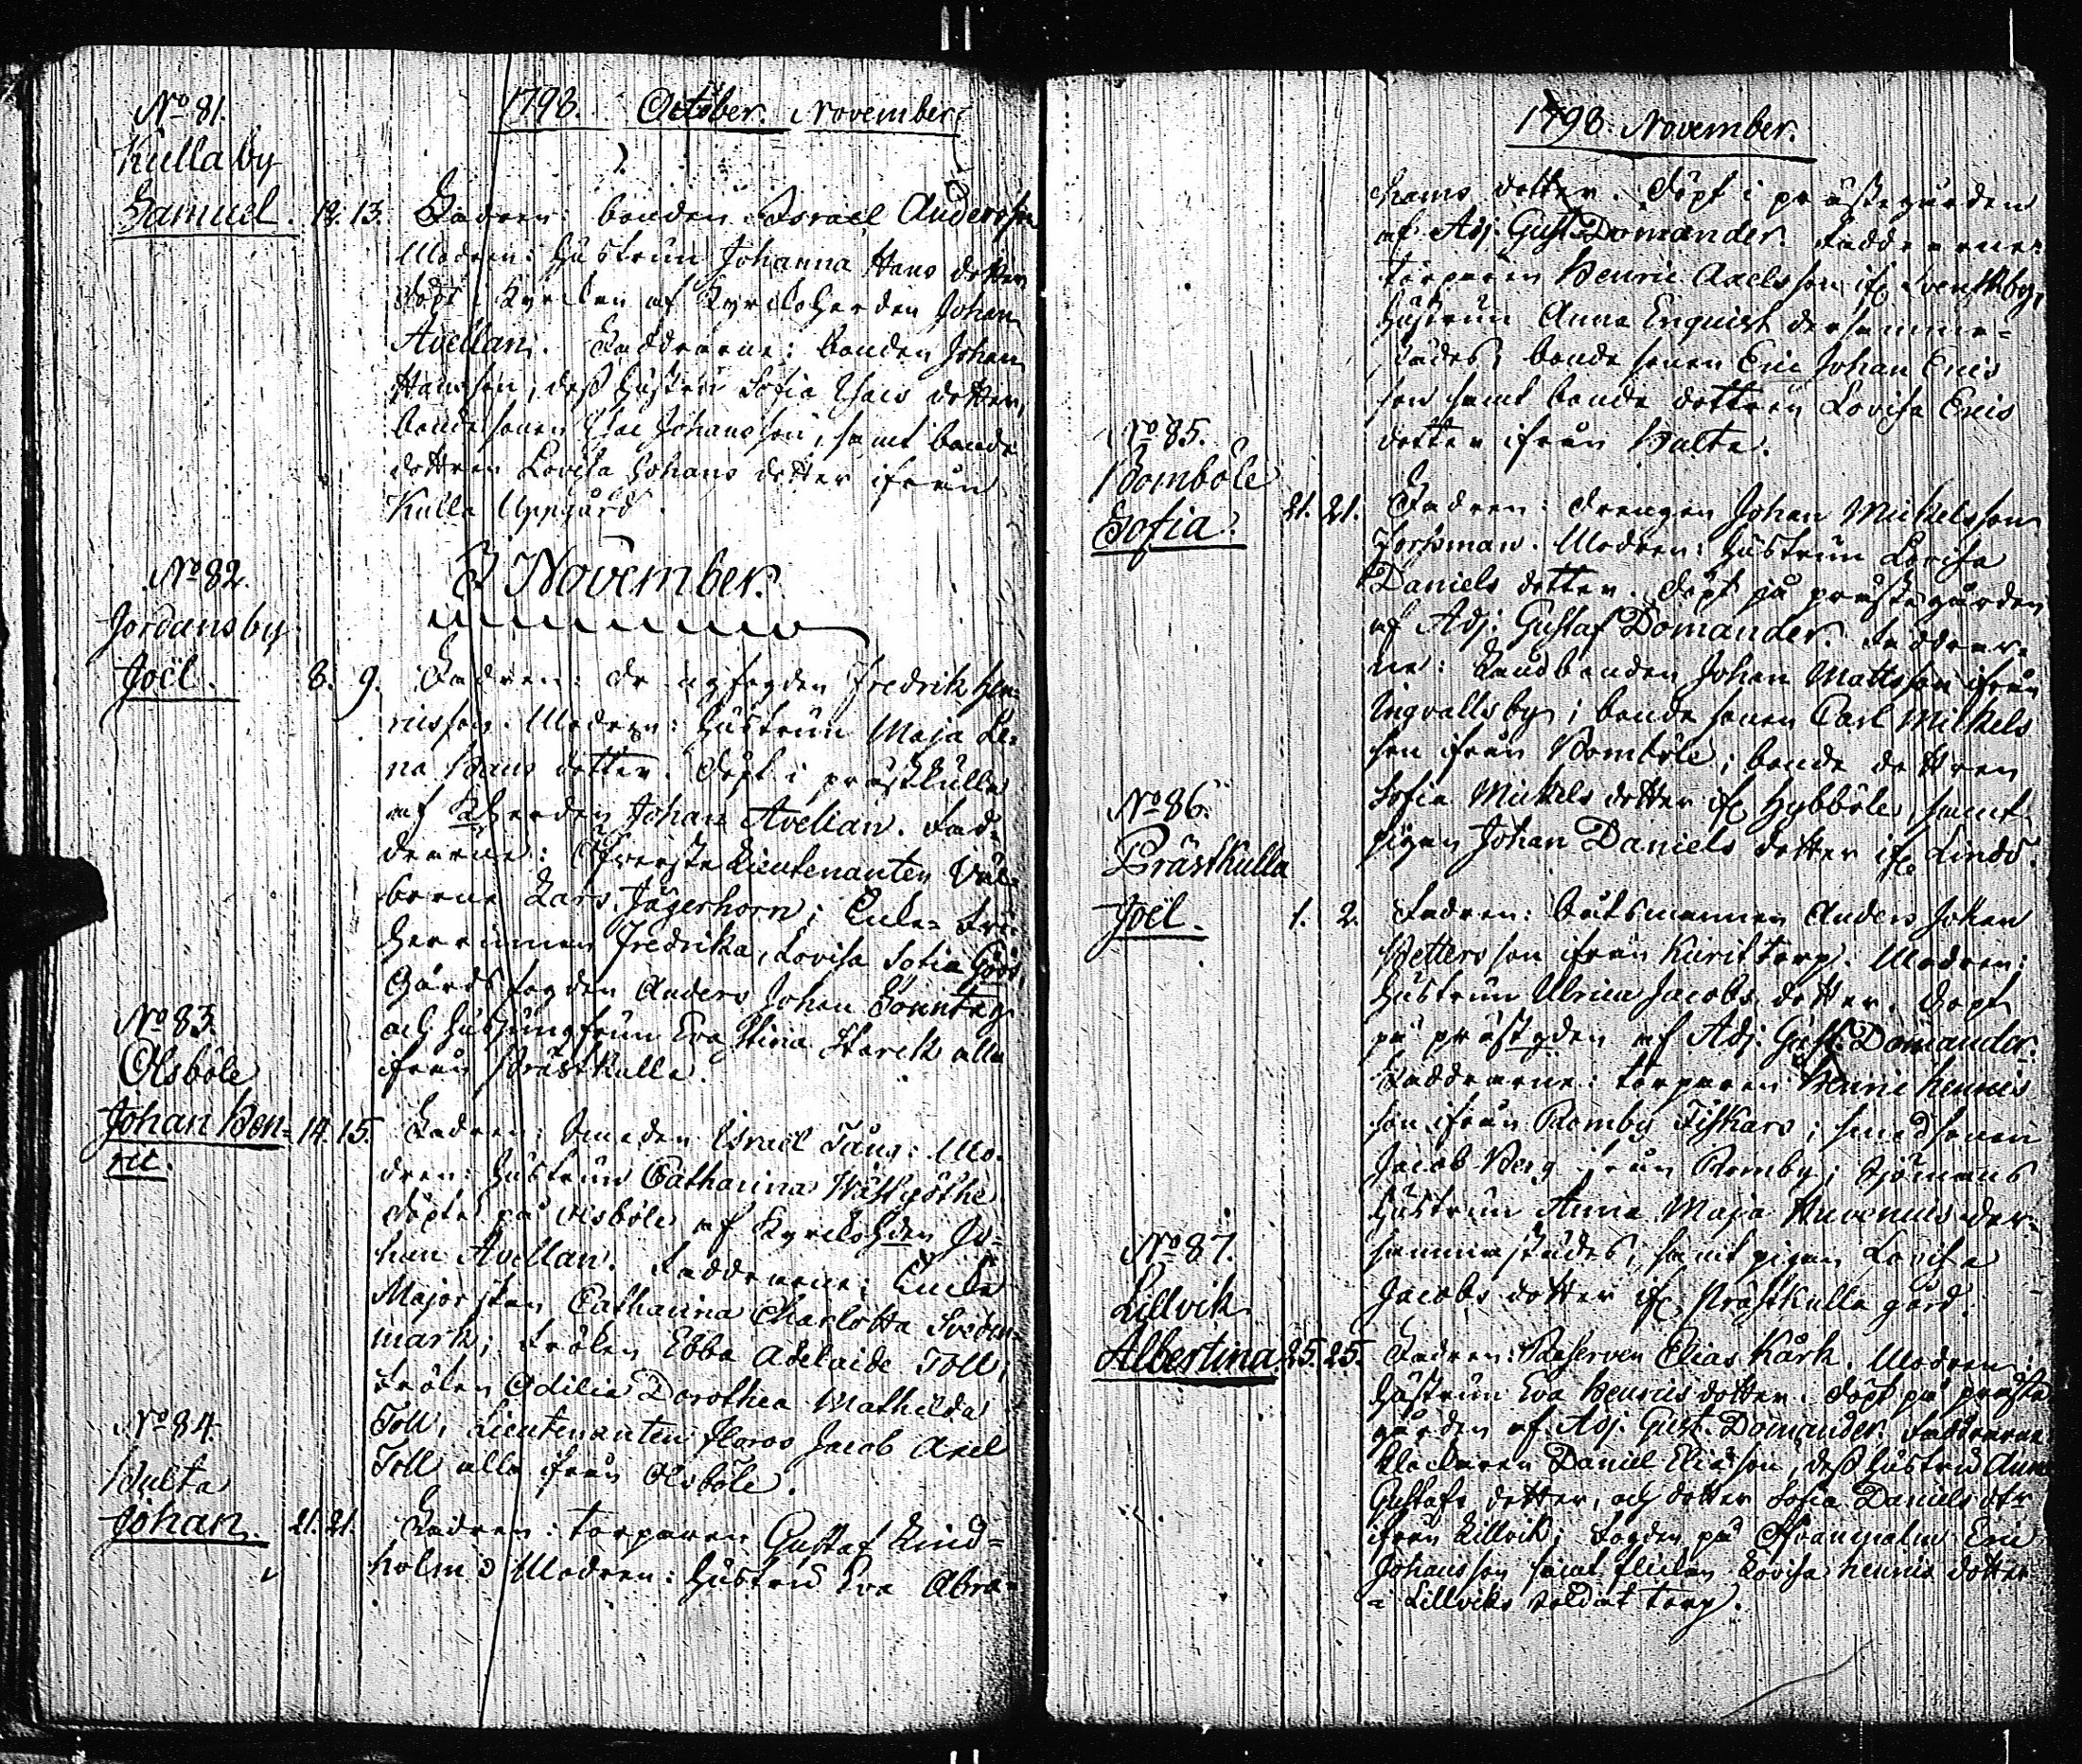 1798. October. November.
No 81.
Kulla by
Samuel. 12. 13. Fadren: bonden Israel Andersson
Modren: hustrun Johanna Hans dotter
döpt i Kyrckan af Kyrckoherden Johan
Avellan. Faddrarne: bonden Johan
Hansson, dess hustru Sofia Isacs dotter,
bonde sonen Isac Johansson, samt bonde
dottren Lovisa Johans dotter ifrån
Kulla Uppgård.
November.
No 82.
Jordansby
Joël. 8. 9. Fadren: drängfogden Fredrik Hen-
ricsson. Modren: hustrun Maja Le-
na Hans dotter. Döpt i prästkulla
af Kherden Johan Avellan. Fad-
drarne: Öfverste Lieutenanten Väl-
borne Lars Jägerhorn; Enke- Fri-
herrinnan Fredrika, Lovisa Sofia
Gårds fogden Anders Johan Sonntag
och hus jungfrun Eva Stina Starck alla
ifrån Prästkulla.
No 83.
Olsböle
Johan Hen-
ric. 14. 15. Fadren: Smeden Israël Tång: Mo-
dren: hustrun Catharina Wästgöthe
döpte på Olsböle af Kyrckohden Jo-
han Avellan. Faddrarne: Enke
Majorskan Catharina Charlotta Svedm-
mark; Fröken Ebba Adelaide Toll;
Fröken Odilia Dorothea Mathilda
Toll; Lieutenanten Jacob Axel
Toll alla ifrån Olsböle.
No 84.
Hulta
Johan. 21. 21. Fadren: torparen Gustaf Lind-
holm Modren: hustru Eva Abra-
1798. November.
hams dotter. Döpt i prästegården
af Adj. Gust. Domander. Faddrarne:
torparen Henric Axelsson if Svenskby,
hustrun Anna Enquist dersamma-
städes; bonde sonen Eric Johan Erics
son samt bonde dottren Lovisa Erics
dotter ifrån Hulta.
No 85.
Bomböle
Sofia. 21. 21. Fadren: drengen Johan Mickelsson
Forssman. Modren: hustrun Lovisa
Daniels dotter. Döpt på prästegården
af Adj: Gustaf Domander. Faddrar-
ne: Landbonden Johan Mattsson ifrån
Ingvallsby; bonde sonen Carl Mickels
son ifrån Bomböle; bonde dottren
Sofia Mickels dotter if Hybböle, samt
pigan Johan Daniels dotter if Lindö.
No 86.
Prästkulla
Joël. 1. 2. Fadren: båtsmannen Anders Johan
Pettersson ifrån torp. Modren:
hustrun Ulrica Jacobs dotter. Döpt
på prästgden af Adj. Gust. Domander.
Faddrarne: torparen Henric Henrics
son ifrån Romby Fiskars; smed sonen
Jacob Berg ifrån Romby; Sjömans
hustrun Anna Maja der-
samma städes, samt pigan Lovisa
Jacobs dotter if Prästkulla gård.
No 87.
Lillvik
Albertina 25. 25. Fadren: Reserven Elias Kårk. Modren:
hustrun Eva Henrics dotter. Döpt på präste
gården af Adj. Gust. Domander. Faddrarne
klockaren Daniel Eliasson, dess hustru Anna
Gustafs dotter, och dotter Sofia Daniels dtr
ifrån Lillvik; Fogden på Eric
Johansson samt flickan Lovisa Henrics dotter
i Lillviks soldat torp.